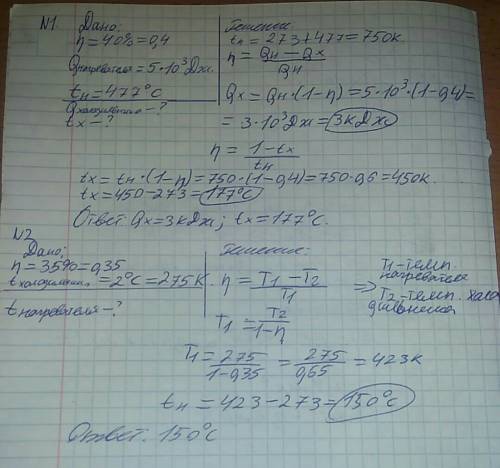 N1 Дано:
η = 40% = 0,4
Qнагревателя = 5·10³ Дж.
tн = 477°C
Qхолодильника - ?
tх - ?
Решение:
tн = 273 + 477 = 750K
η = Qн - Qх / Qн
Qх = Qн·(1-η) = 5·10³·(1-0,4) =
= 3·10³ Дж = 3кДж
η = 1-tх / tн
tх = tн·(1-η) = 750·(1-0,4) = 750·0,6 = 450K.
tх = 450-273 = 177°C
Ответ: Qх = 3кДж; tх = 177°C.
N2
Дано:
η = 35% = 0,35
tхолодильника = 2°C = 275K.
tнагревателя - ?
Решение:
η = T1 - T2 / T1 ⇒ T1 - темп. нагревателя
T2 - темп. холодильника
T1 = T2 / 1-η
T1 = 275 / 1-0,35 = 275 / 0,65 = 423K
tн = 423-273 = 150°C
Ответ: 150°C